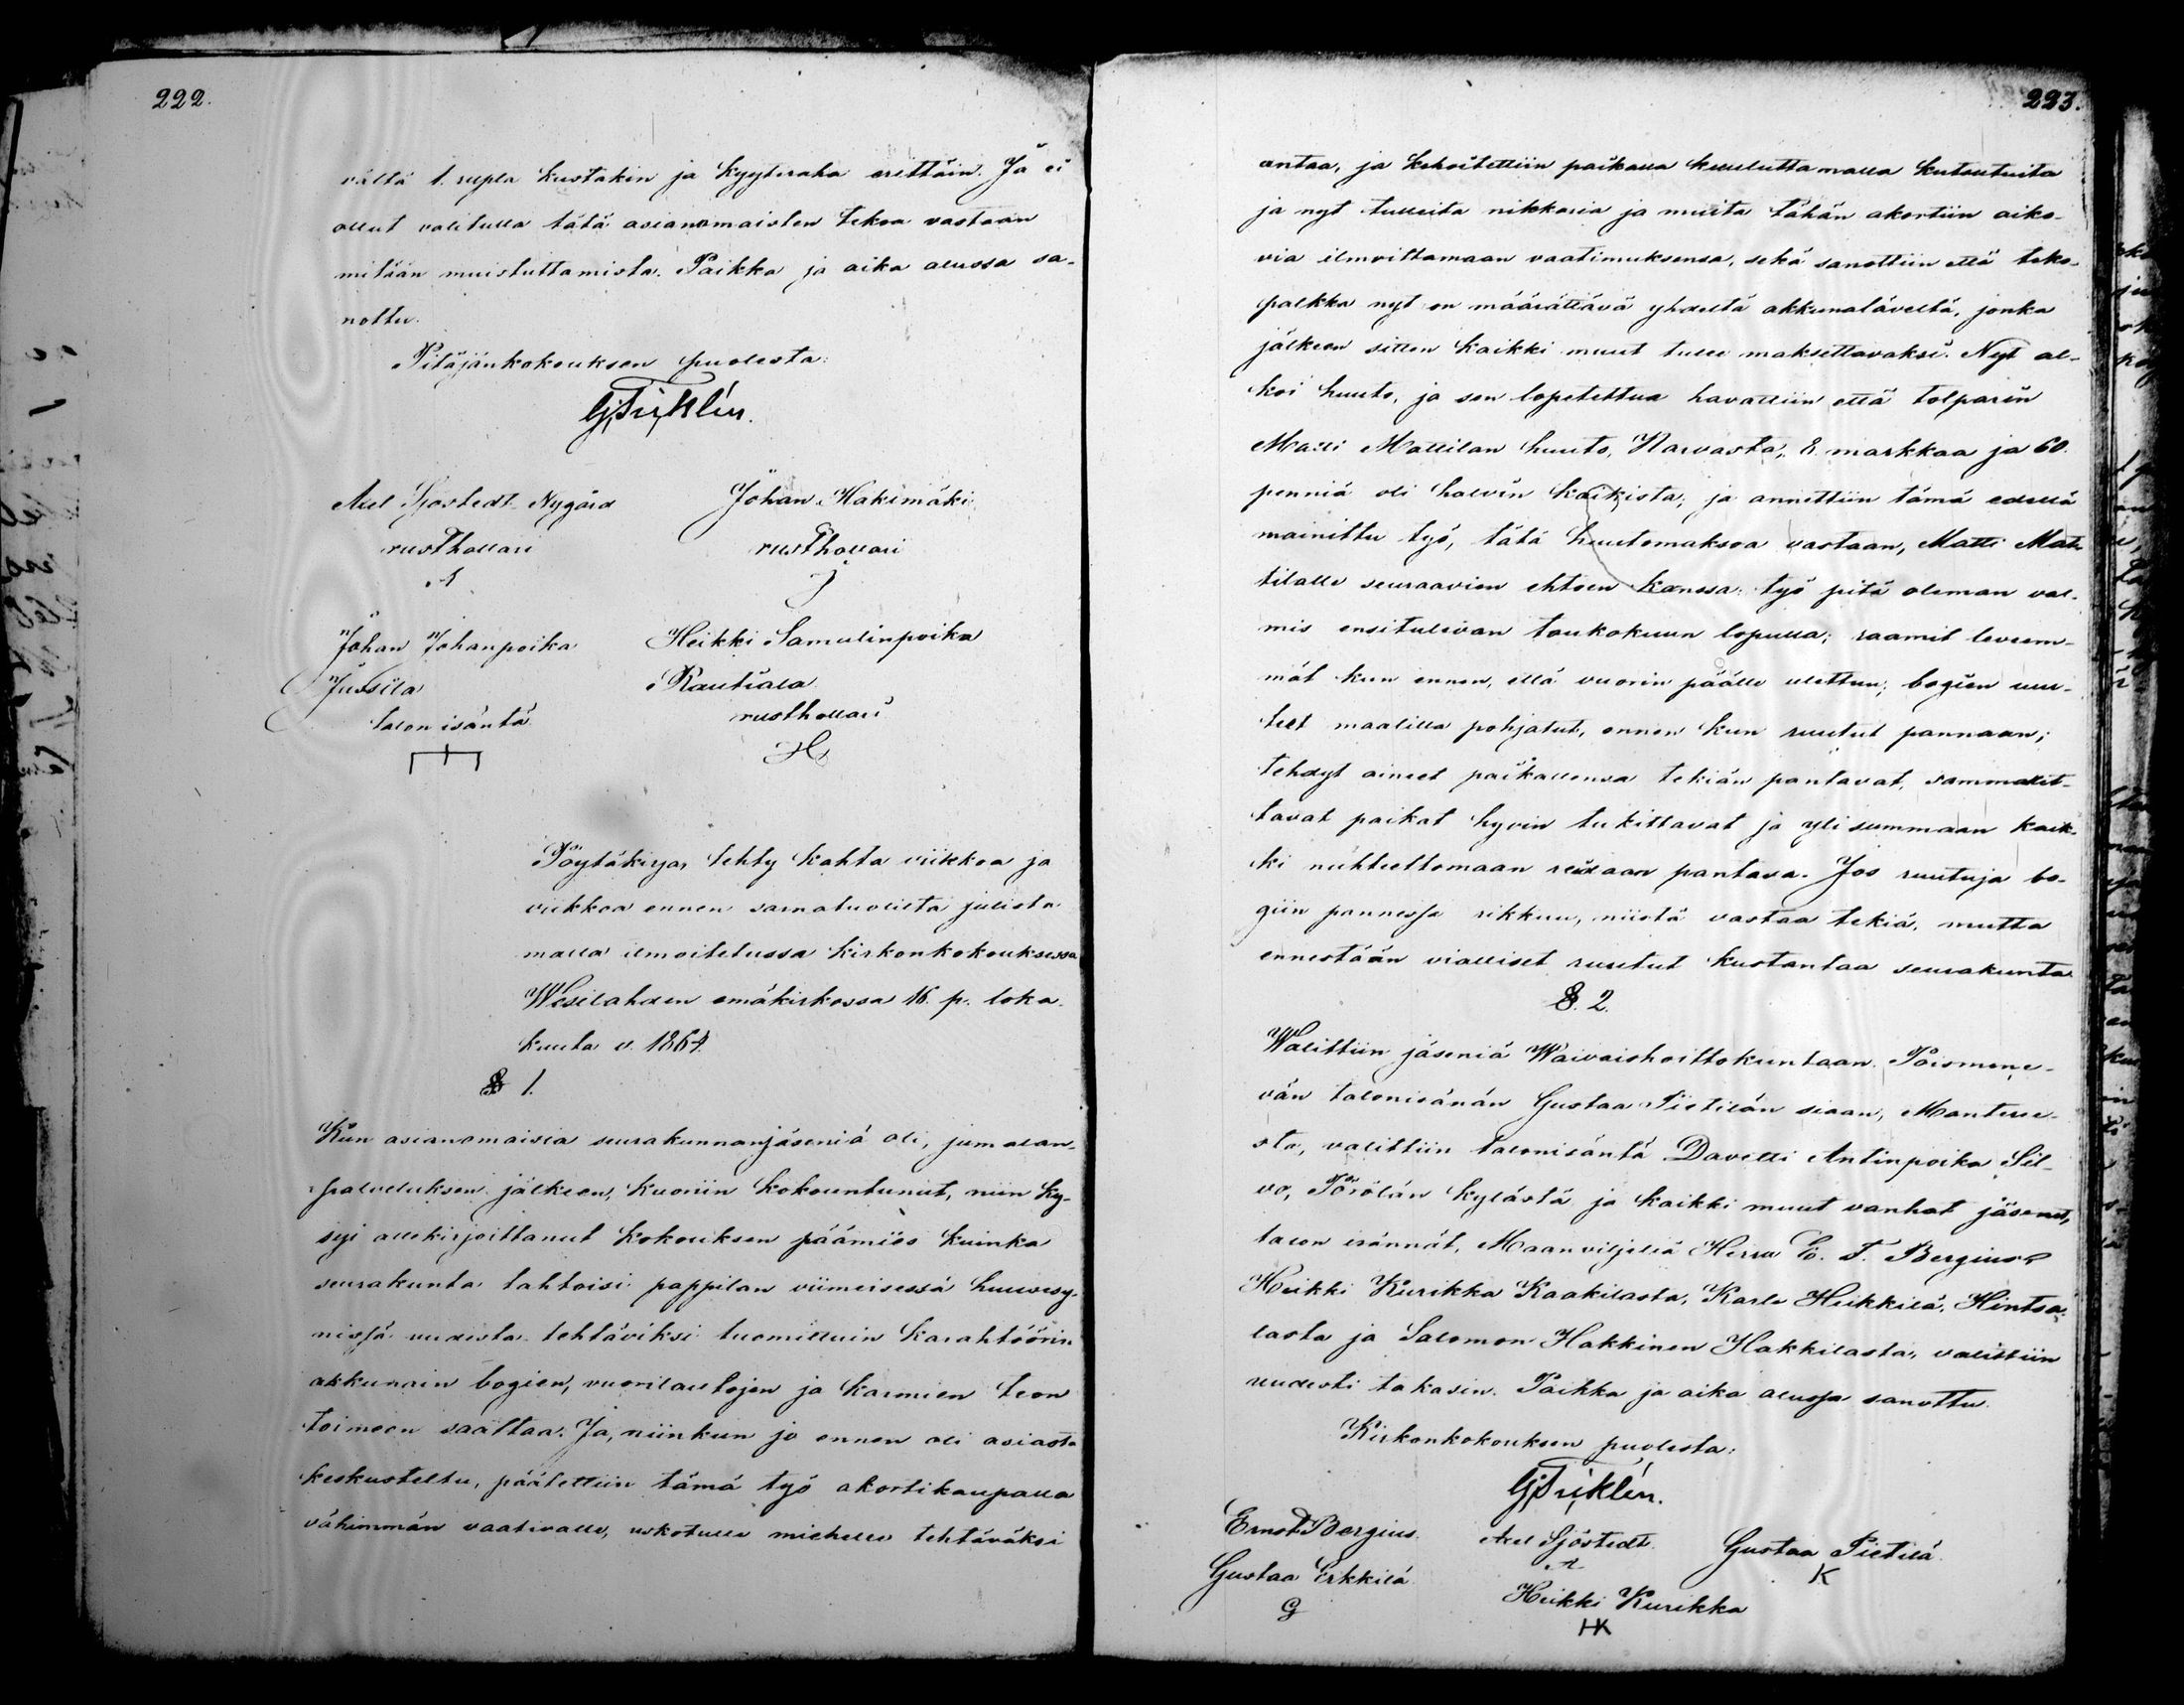 222.
vältä 1. rupla kustakin ja kyytiraha erittäin. Ja ei
ollut valitulla tätä asianomaisten tekoa vastaan
mitään muistuttamista. Paikka ja aika alussa sa-
nottu.
Pitäjänkokouksen puolesta:
Axel Sjöstedt Nygård
rusthollari
A
Johan Hakimäki
rusthollari
J
Johan Johanpoika
Jussila
talon isäntä
Heikki Samulinpoika
Rautiala
rusthollari
H
Pöytäkirja, tehty kahta viikkoa ja
viikkoa ennen saarnatuolilta julista
malla ilmoitetussa kirkonkokouksessa
Wesilahden emäkirkossa 16. p. loka-
kuuta v. 1864.
§ 1.
Kun asianomaisia seurakunnanjäseniä oli, jumalan-
palveluksen jälkeen, kuoriin kokountunut, niin ky-
syi allekirjoittanut kokouksen päämiës kuinka
seurakunta tahtoisi pappilan viimeisessä huuvesy-
nissä uudista tehtäviksi tuomittuin karahtöörin
akkunain bogien, vuorilautojen ja karmien teon
toimeen saattaa. Ja, niinkun jo ennen oli asiasta
keskusteltu, päätettiin tämä työ akortikaupalla
vähimmän vaativalle, uskotulle miehelle tehtäväksi
223.
antaa, ja kehoitettiin paikalla kuuluttamalla kutsutuita
ja nyt tulleita nikkaria ja muita tähän akortiin aiko-
via ilmoittamaan vaatimuksensa, sekä sanottiin että teko-
palkka nyt on määrättävä yhdeltä akkunaläveltä, jonka
jälkeen sitten kaikki muut tulee maksettavaksi. Nyt al-
koi huuto, ja sen lopetettua havattiin että tolparin
Matti Mattilan huuto, Narvasta, 8. markkaa ja 60.
penniä oli halvin kaikista, ja annettiin tämä edellä
mainittu työ, tätä huutomaksoa vastaan, Matti Mat-
tilalle seuraavien ehtoen kanssa: työ pitä oleman val-
mis ensitulevan toukokuun lopulla; raamit leveem-
mät kun ennen, että vuorin päälle ulettuu; bogien uur-
teet maalilla pohjatut, ennen kun ruutut pannaan;
tehdyt aineet paikallensa tekiän pantavat, sammalit-
tavat paikat hyvin tukittavat ja yli summaan kaik-
ki nuhteettomaan reidaan pantava. Jos ruutuja bo-
giin pannessa rikkuu, niistä vastaa tekiä, mutta
ennestään vialliset ruutut kustantaa seurakunta
§. 2.
Walittiin jäseniä Waivaishoittokuntaan. Poismene-
vän talonisänän Gustaa Pietilän siaan, Mantere-
sta, valittiin talonisäntä Davetti Antinpoika Sil-
vo, Pörölän kylästä ja kaikki muut vanhat jäsenet,
talon isännät, Maanviljeliä Herra E. F. Bergius,
Heikki Kurikka Kaakilasta, Karle Heikkilä, Hintsa-
lasta ja Salomon Hakkinen Hakkilasta, valittiin
uudesti takasin. Paikka ja aika alussa sanottu.
Kirkonkokouksen puolesta:
Ernst Bergius.
Axel Sjöstedt.
A
Gustaa Pietilä.
K
Gustaa Erkkilä
G
Heikki Kurikka
HK